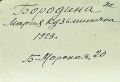 Бородина
Мария Кузьминична
1923г.
Б-Морская, 20